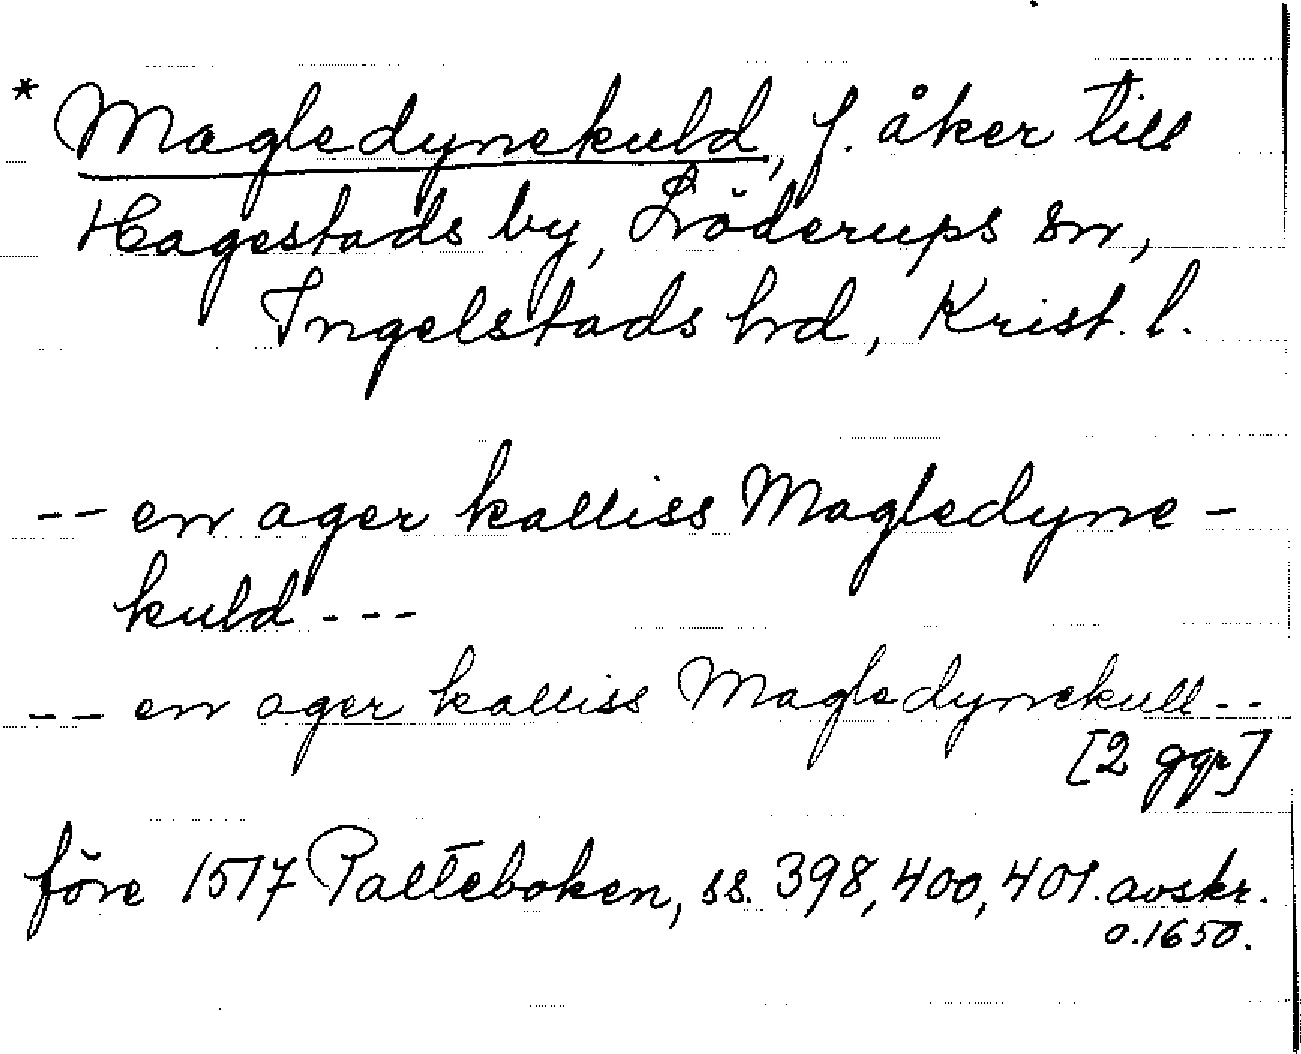 * Magledynekuld, f. åker till
Hagestads by, Löderups sn,
Ingelstads hd, Krist. l.
-- en ager kalliss Magledyne-
kuld ---
-- en ager kalliss Magledynekull--
[2 ggr]
före 1517 Palteboken, ss. 398, 400, 401. avskr.
o. 1650.